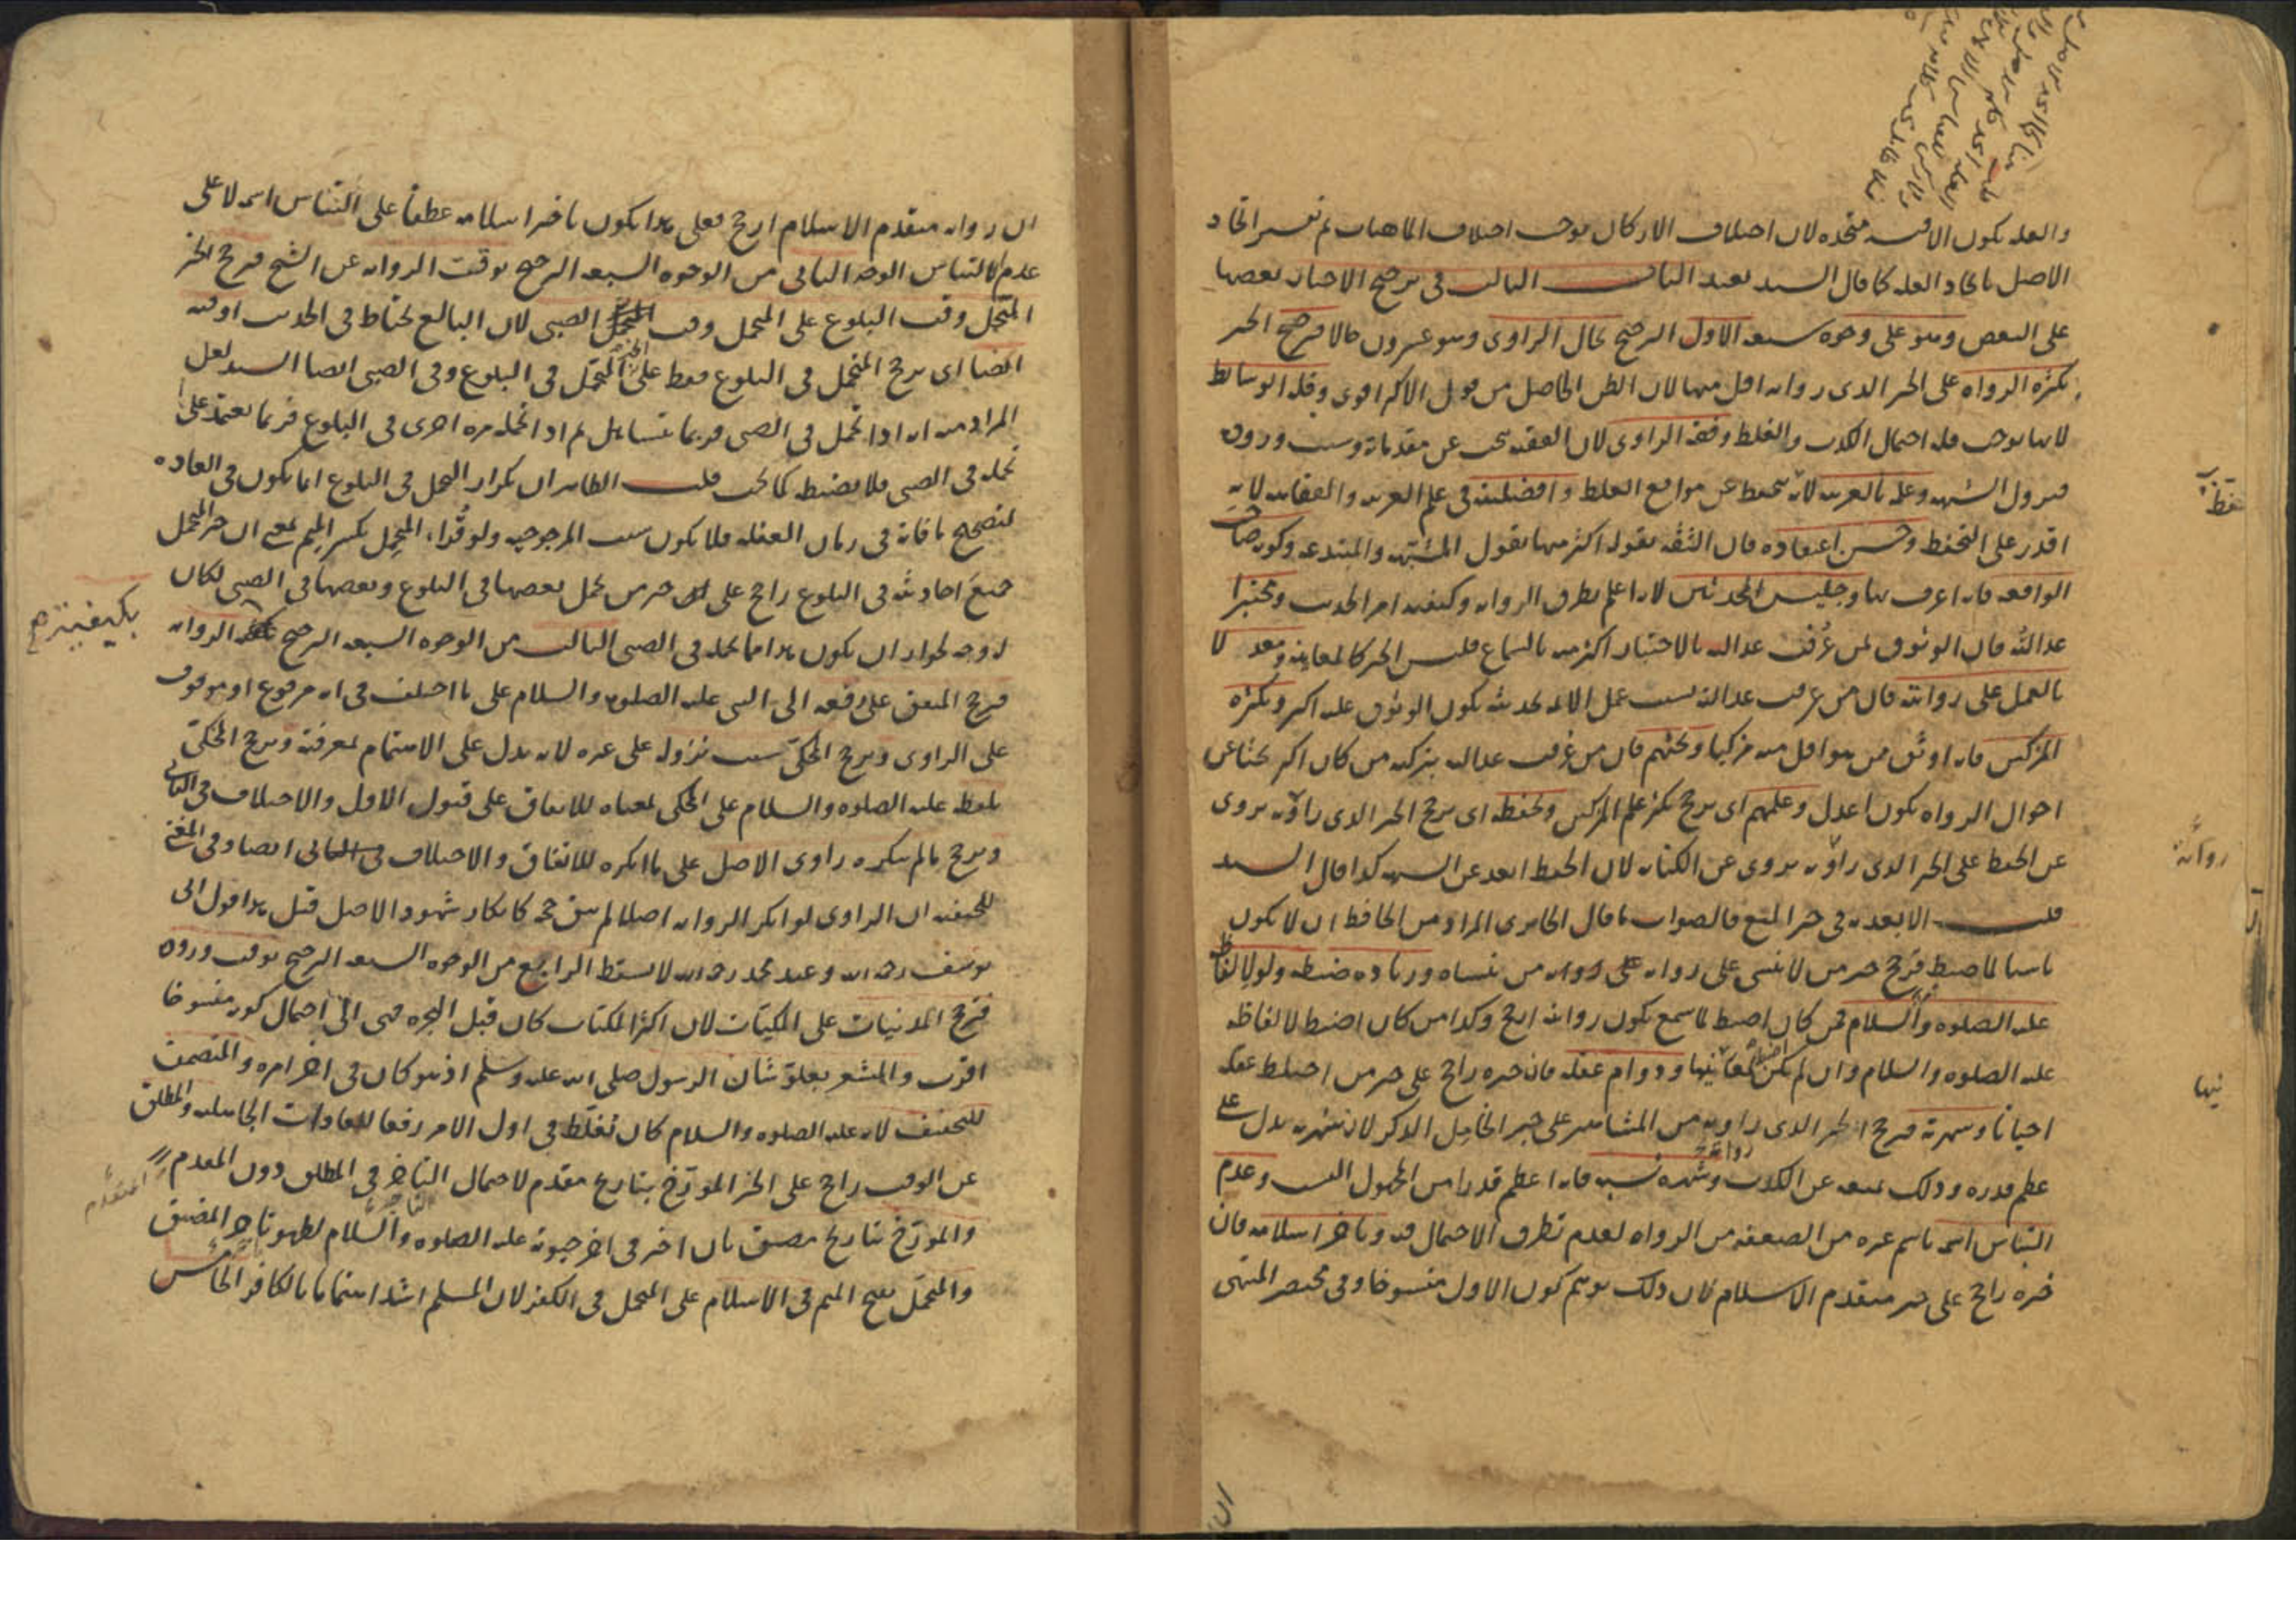 والعلة يكون الاقيسة متحدة لان اختلاف الاركان يوجب اختلاف الماهيات ثم تفسير اتحاد
الاصل باتحاد العلة كما قال السيد بعيد الباب الثالث فى ترجيح الاخبار بعضها
على البعض وهو على وجوه سبعة الاول الترجيح بحال الراوى وهو عشرون حالا فيرجح الخبر
بكثرة الرواة على الخبر الذى رواته اقل منها لان الظن الحاصل من قول الاكثر اقوى وقلة الوسائط
لانها توجب قلة احتمال الكذب والغلط وفقه الراوى لان الفقيه يبحث عن مقدماته وسبب وروده
فيزول الشبهة وعلمه بالعربية لانه يتحفظ عن مواقع الغلط وافضليته فى علم العربية والفقاهة لانه
اقدر على التحفظ وحسن اعتقاده فان الثقة بقوله اكثر منها بقول المشتبه والمبتدعة وكونه صاحب
الواقعة فانه اعرف بها وجليس المحدثين لانه اعلم بطرق الرواية وكيفية امر الحديث ومختبرا
عدالته فان الوثوق لمن عُرفت عدالته بالاختبار اكثر منه بالسماع فليس الخبر كالمعاينة ومعدلا
بالعمل على روايته فان من عرفت عدالته بسبب عمل الائمة بحديثه يكون الوثوق عليه اكبر وبكثرة
المزكين فانه اوثق من هو اقل منه مزكيا وبحثهم فان من عرفت عدالته بتزكية من كان اكبر بحثا عن
احوال الرواة يكون اعدل وعلمهم اى يرجح بكثرة علم المزكين وبحفظه اى يرجح الخبر الذى راويه يروى
عن الحفظ على الخبر الذى راويه يروى عن الكتاب لان الحفظ ابعد عن الشبهة كذا قال السيد
قلت الابعدية فى حيز المنع فالصواب ما قال الجاربردى المراد من الحافظ ان لا يكون
ناسيا لما ضبط فيرجح خبر من لا ينسى على رواية من ينساه وزيادة ضبطه ولو لالفاظه
عليه الصلوة والسلام فمن كان اضبط لما سمع يكون روايته ارجح وكذا من كان اضبط لالفاظه
عليه الصلوة والسلام وان لم يكن اضبط لمعانيها ودوام عقله فان خبره راجح على خبر من اختلط عقله
احيانا وشهرته فيرجح الخبر الذى راويه من المشاهير على خبر الخامل الذكر لان شهرته يدل على
عظم قدره وذلك يمنعه عن الكذب وشهرة نسبه فانه اعظم قدرا من المجهول النسب وعدم
التباس اسمه باسم غيره من الضعفة من الرواة لعدم تطرق الاحتمال فيه وتاخر اسلامه فان
خبره راجح على خبر متقدم الاسلام لان ذلك يوهم كون الاول منسوخا وفى مختصر المنتهى
روايته
فيها
ان
ان رواية متقدم الاسلام ارجح فعلى هذا يكون تاخر اسلامه عطفا على التباس اسمه لا على
عدم الالتباس الوجه الثانى من الوجوه السبعة الترجيح بوقت الرواية عن الشيخ فيرجح الخبر
المتحمل وقت البلوغ على المتحمل وقت الصبى لان البالغ يحتاط فى الحديث او فيه
ايضا اى يرجح المتحمل فى البلوغ فقط على الخبر المتحمل فى البلوغ وفى الصبى ايضا السيد لعل
المراد منه انه اذا تحمل فى الصبى فربما تساهل ثم اذا تحمله مرة اخرى فى البلوغ فربما يعتمد على
تحمله فى الصبى فلا يضبط كما يجب قلت الظاهر ان تكرار التحمل فى البلوغ انما يكون فى العادة
لتصحيح ما فاته فى زمان الغفلة فلا يكون سبب المرجوحية ولو قُرا، المتحمِل بكسر الميم بمعنى ان خبر المتحمل
جميعَ احاديثه فى البلوغ راجح على خبر من تحمل بعضها فى البلوغ وبعضها فى الصبى لكان
له وجه لجواز ان يكون هذا مما تحمله فى الصبى الثالث من الوجوه السبعة الترجيح بكيفية الرواية
فيرجح المتفق على رفعه الى النبى عليه الصلوة والسلام على ما اختلف فى انه مرفوع او موقوف
على الراوى ويرجح المحكى سبب نزوله على غيره لانه يدل على الاهتمام بمعرفته ويرجح المحكى
بلفظه عليه الصلوة والسلام على المحكى بمعناه للاتفاق على قبول الاول والاختلاف فى الثانى
ويرجح ما لم ينكره راوى الاصل على ما انكره للاتفاق والاختلاف فى الثانى ايضا وفى المغنى
للحنفية ان الراوى لو انكر الرواية اصلا لم يبق حجة كانكار شهود الاصل قيل هذا قول ابى
يوسف رحمه الله وعند محمد رحمه الله لا يسقط الرابع من الوجوه السبعة الترجيح بوقت وروده
فيرجح المدنيات على المكيات لان اكثر المكيات كان قبل الهجرة فهى الى احتمال كونه منسوخا
اقرب والمشعر بعلو شان الرسول صلى الله عليه وسلم اذ هو كان فى اخر امره والمتضمن
للتخفيف لانه عليه الصلوة والسلام كان تغلظ فى اول الامر رفعا للعادات الجاهلية والمطلق
عن الوقت راجح على الخبر المورخ بتاريخ مقدم لاحتمال التاخر فى المطلق دون المقدم
والمورخ بتاريخ مضيق بان اخر فى اخر حيوته عليه الصلوة والسلام لظهور تاخر المضيق
والمتحمَّل بفتح الميم فى الاسلام على المتحمل فى الكفر لان المسلم اشد اهتماما بالكافر الخامس
بكيفية